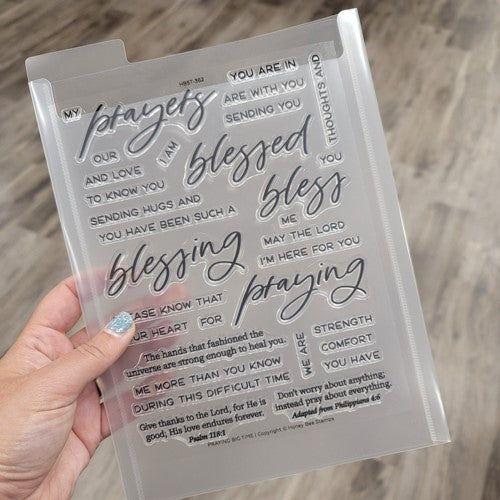 HBST-362
MY
prayers
YOU ARE IN
ARE WITH YOU
SENDING YOU
THOUGHTS AND
OUR
I AM
blessed
AND LOVE
TO KNOW YOU
YOU
bless
SENDING HUGS AND
YOU HAVE BEEN SUCH A
ME
MAY THE LORD
I'M HERE FOR YOU
blessing
praying
EASE KNOW THAT
UR HEART
FOR
The hands that fashioned the
universe are strong enough to heal you.
WE ARE
STRENGTH
COMFORT
YOU HAVE
ME MORE THAN YOU KNOW
DURING THIS DIFFICULT TIME
Give thanks to the Lord, for He is
good; His love endures forever.
Psalm 118:1
Don't worry about anything;
instead pray about everything.
Adapted from Philippians 4:6
PRAYING BIG TIME | Copyright © Honey Bee Stamps